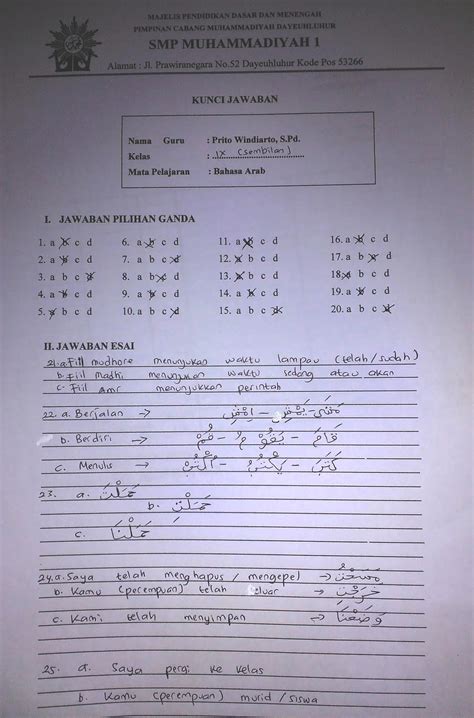 MAJELIS PENDIDIKAN DASAR DAN MENENGAH
PIMPINAN CABANG MUHAMMADIYAH DAYEUHLUHUR
SMP MUHAMMADIYAH 1
Alamat : Jl. Prawiranegara No.52 Dayeuhluhur Kode Pos 53266
KUNCI JAWABAN
Nama Guru : Prito Windiarto, S.Pd.
Kelas : IX (sembilan)
Mata Pelajaran : Bahasa Arab
I. JAWABAN PILIHAN GANDA
1. a b c d 6. a b c d 11. a b c d 16. a b c d
2. a b c d 7. a b c d 12. a b c d 17. a b c d
3. a b c d 8. a b c d 13. a b c d 18. a b c d
4. a b c d 9. a b c d 14. a b c d 19. a b c d
5. a b c d 10. a b c d 15. a b c d 20. a b c d
II. JAWABAN ESAI
21. a. Fiil mudhore menunjukan waktu lampau (telah/sudah)
b. Fiil Madhi menunjukan waktu sedang atau akan
c. Fiil Amr menunjukkan perintah
22. a. Berjalan → مَشَى - يَمْشِي - اِمْشِ
b. Berdiri → قَامَ - يَقُوْمُ - قُمْ
c. Menulis → كَتَبَ - يَكْتُبُ - اُكْتُبْ
23. a. حَمَلْتُ
b. حَمَلْتِ
c. حَمَلْنَا
24. a. Saya telah menghapus / mengepel → مَسَحْتُ
b. Kamu (perempuan) telah keluar → خَرَجْتِ
c. Kami telah menyimpan → وَضَعْنَا
25. a. Saya pergi ke kelas
b. Kamu (perempuan) murid / siswa